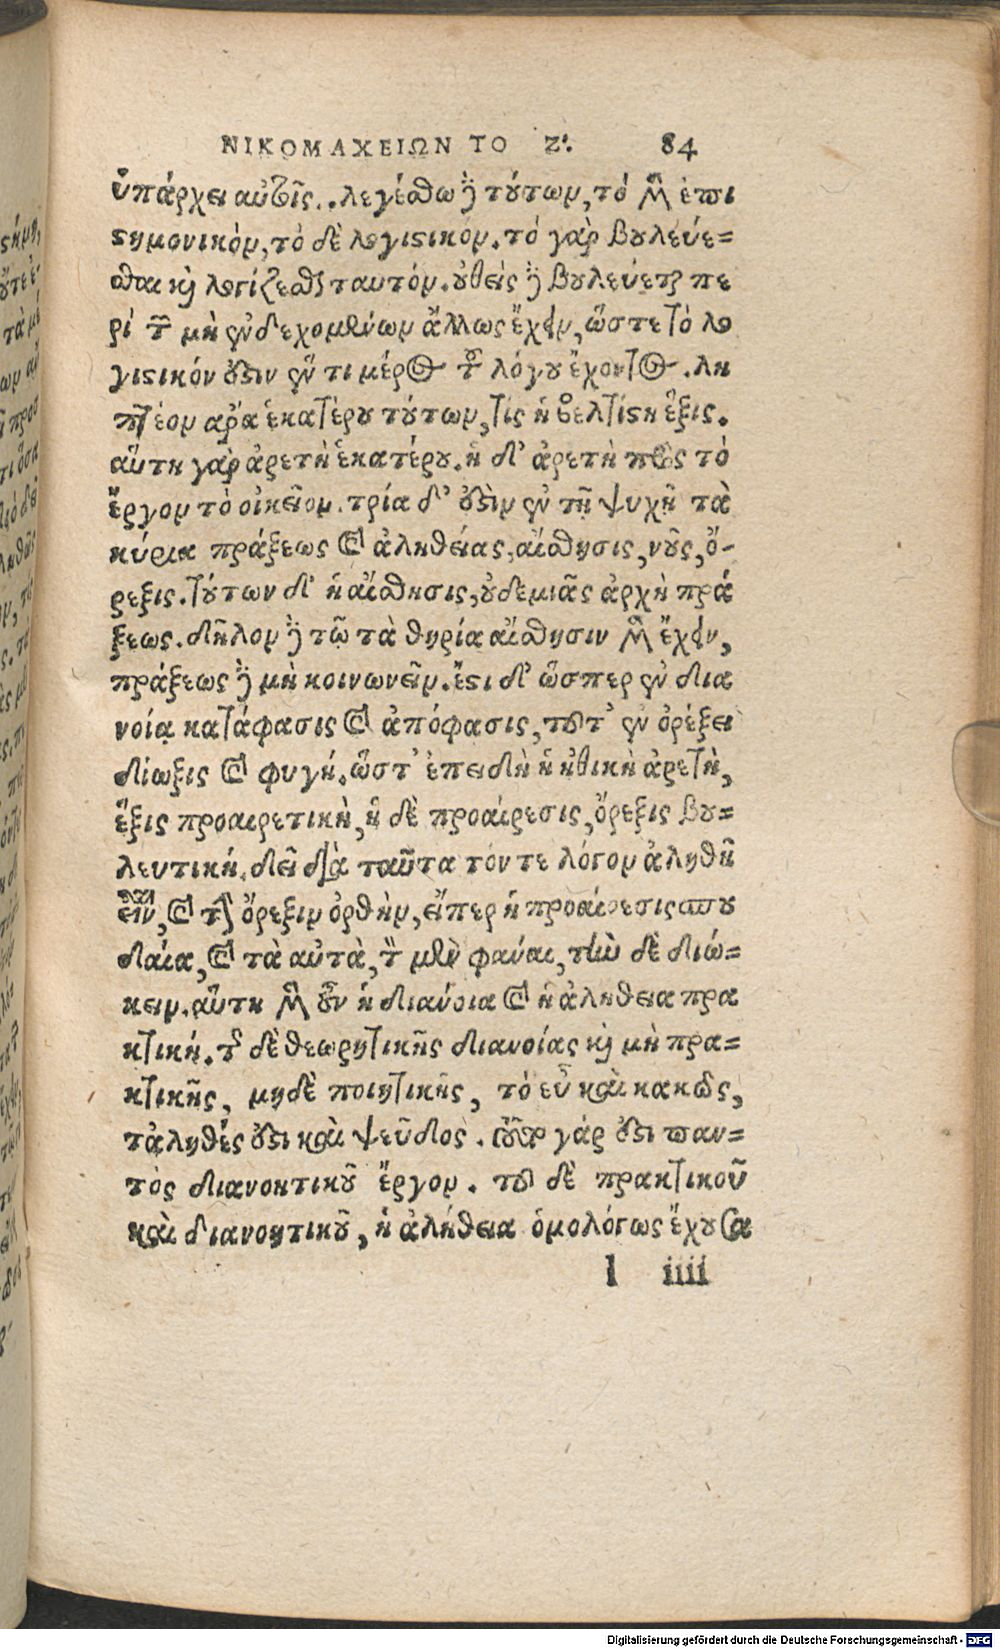 ΝΙΚΟΜΑΧΕΙΩΝ ΤΟ Ζ. 84
ὑπάρχει αὐτοῖς. λεγέσθω δὲ τούτων, τό μὲν ἐπι
στημονικὸν, τὸ δὲ λογιστικόν. τό γὰρ βουλεύε=
σθαι καὶ λογίζεσθαι ταυτόν. οὐθεὶς δὲ βουλεύεται πε
ρί τῶν μὴ ἐνδεχομένων ἄλλως ἔχειν, ὥστε τὸ λο
γιστικόν ὅστιν ἕν τι μέρος τοῦ λόγου ἔχοντος. λη
πτέον ἄρα ἑκατέρου τούτων, τίς ἡ βελτίστη ἕξις.
αὕτη γὰρ ἀρετὴ ἑκατέρου. ἡ δ' ἀρετὴ πρὸς τό
ἔργον τὸ οἰκεῖον. τρία δ' ὅστὶν ἐν τῇ ψυχῇ τὰ
κύρια πράξεως καὶ ἀληθείας, αἴσθησις, νοῦς, ὄ-
ρεξις. τούτων δ' ἡ αἴσθησις, οὐδεμιᾶς ἀρχὴ πρά
ξεως. δῆλον δὲ τῷ τὰ θηρία αἴσθησιν μὲν ἔχειν,
πράξεως δὲ μὴ κοινωνεῖν. ἔστι δ' ὥσπερ ἐν δια
νοίᾳ κατάφασις καὶ ἀπόφασις, τοῦτ' ἐν ὀρέξει
δίωξις καὶ φυγή. ὥστ' ἐπειδὴ ἡ ἠθικὴ ἀρετὴ,
ἕξις προαιρετικὴ, ἡ δὲ προαίρεσις, ὄρεξις βου=
λευτική. δεῖ διὰ ταῦτα τόν τε λόγον ἀληθῆ
εἶναι, καὶ τὴν ὄρεξιν ὀρθὴν, εἴπερ ἡ προαίρεσις σπου
δαία, καὶ τὰ αὐτὰ, τὸν μὲν φάναι, τὴν δὲ διώ=
κειν. αὕτη μὲν οὖν ἡ διάνοια καὶ ἡ ἀλήθεια πρα
κτική. τῆς δὲ θεωρητικῆς διανοίας καὶ μὴ πρα=
κτικῆς, μηδὲ ποιητικῆς, τὸ εὖ καὶ κακῶς,
τἀληθές ὅστι καὶ ψεῦδος. τοῦτο γάρ ὅστι παν=
τὸς διανοητικοῦ ἔργον. τοῦ δὲ πρακτικοῦ
καὶ διανοητικοῦ, ἡ ἀλήθεια ὁμολόγως ἔχουσα
l iiii
Digitalisierung gefördert durch die Deutsche Forschungsgemeinschaft - DFG